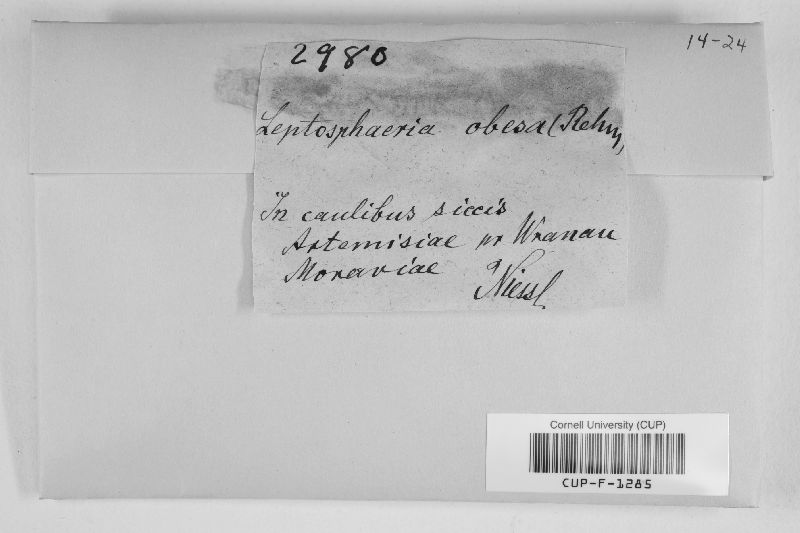 2980
14-24
Leptosphaeria obesa (Rehm)
In caulibus siccis
Artemisiae pr Wranau
Moraviae
Niessl
Cornell University (CUP)
CUP-F-1285